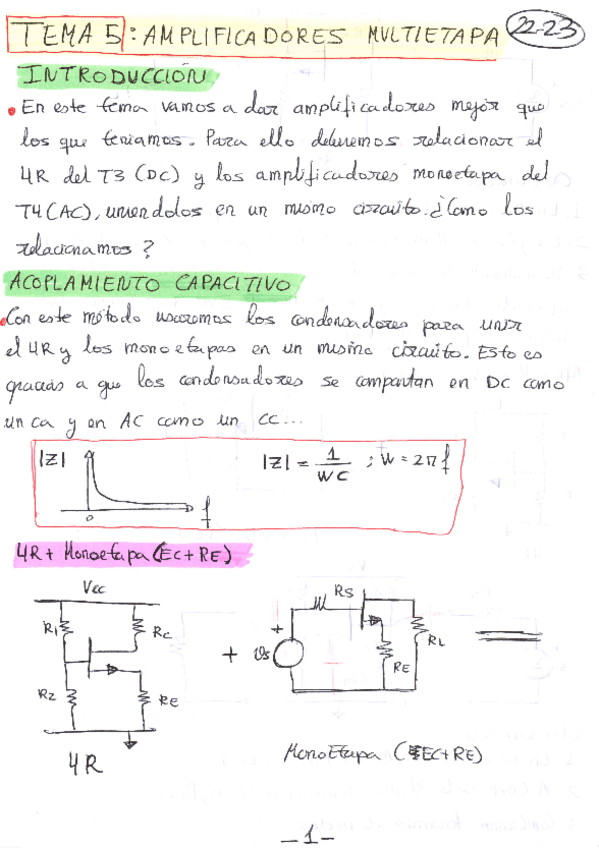 TEMA 5: AMPLIFICADORES MULTIETAPA 22-23
INTRODUCCIÓN
• En este tema vamos a dar amplificadores mejor que
los que teniamos. Para ello deberemos relacionar el
4R del T3 (DC) y los amplificadores monoetapa del
T4 (AC), uniendolos en un mismo circuito. ¿Como los
relacionamos?
ACOPLAMIENTO CAPACITIVO
• Con este método usaremos los condensadores para unir
el 4R y los monoetapas en un mismo circuito. Esto es
gracias a que los condensadores se comportan en DC como
un ca y en AC como un cc...
|Z| |Z| = 1/WC ; W = 2π f
0 f
4R + Monoetapa (EC+RE)
Vcc
R1 Rc
R2 RE
4R
+
Vs + RS RE RL
MonoEtapa (EC+RE)
-1-